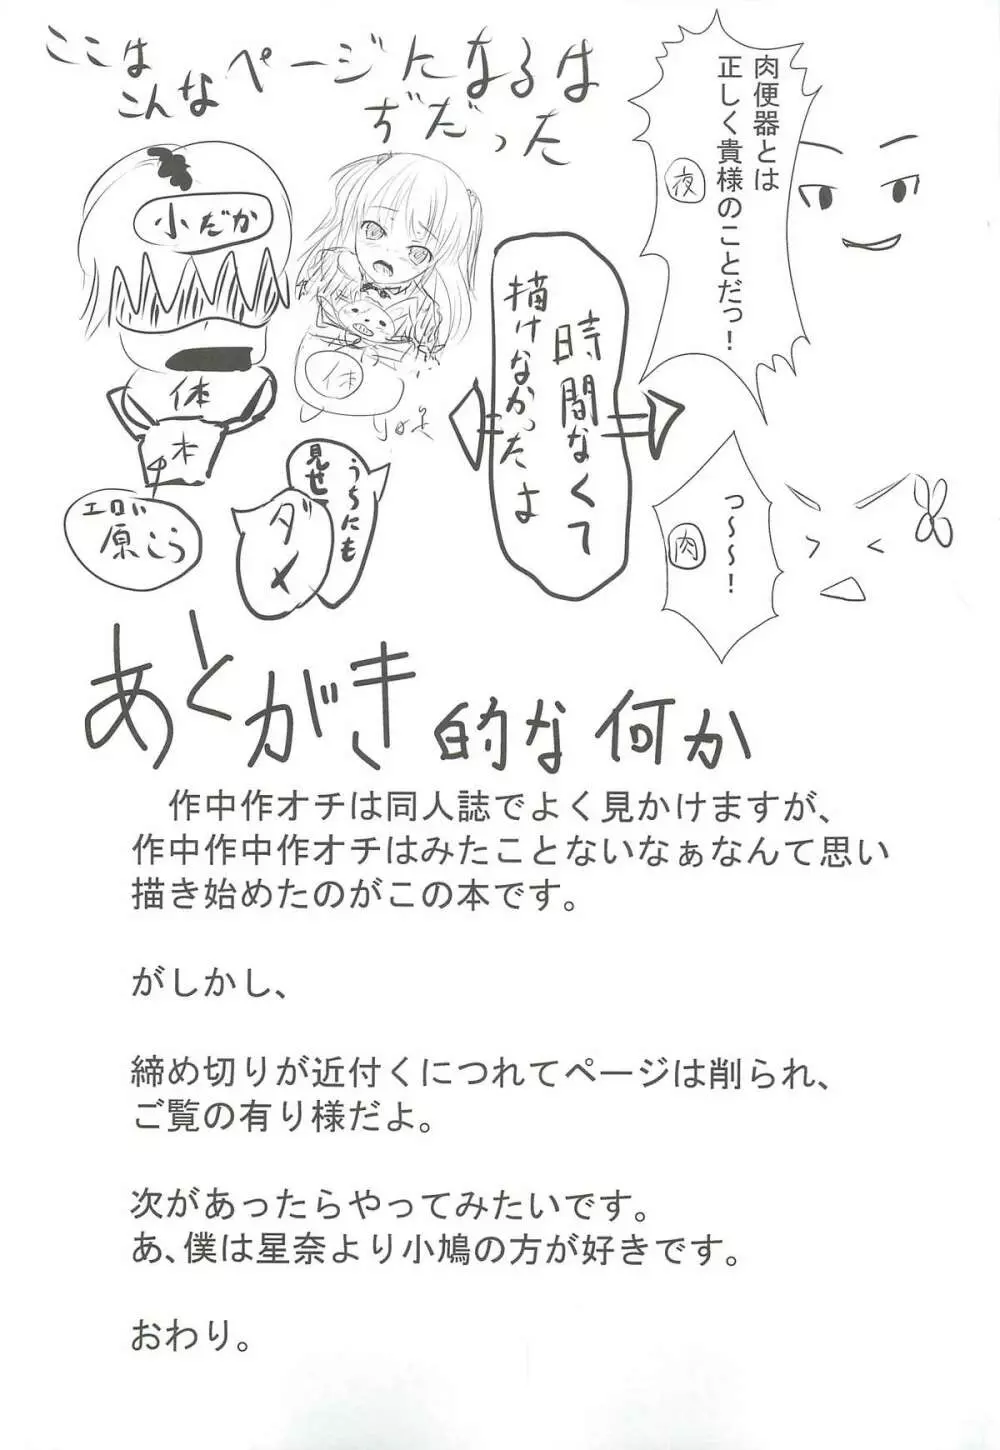 ここは
こんなページになるは
ずだった
肉便器とは
正しく貴様のことだっ！
夜
小だか
体
本
体
時間なくて
描けなかったよ
エロい
原こう
うちにも
見せ
ダメ
っ～～～！
肉
あとがき的な何か
作中作オチは同人誌でよく見かけますが、
作中作中作オチはみたことないなぁなんて思い
描き始めたのがこの本です。
がしかし、
締め切りが近付くにつれてページは削られ、
ご覧の有り様だよ。
次があったらやってみたいです。
あ、僕は星奈より小鳩の方が好きです。
おわり。